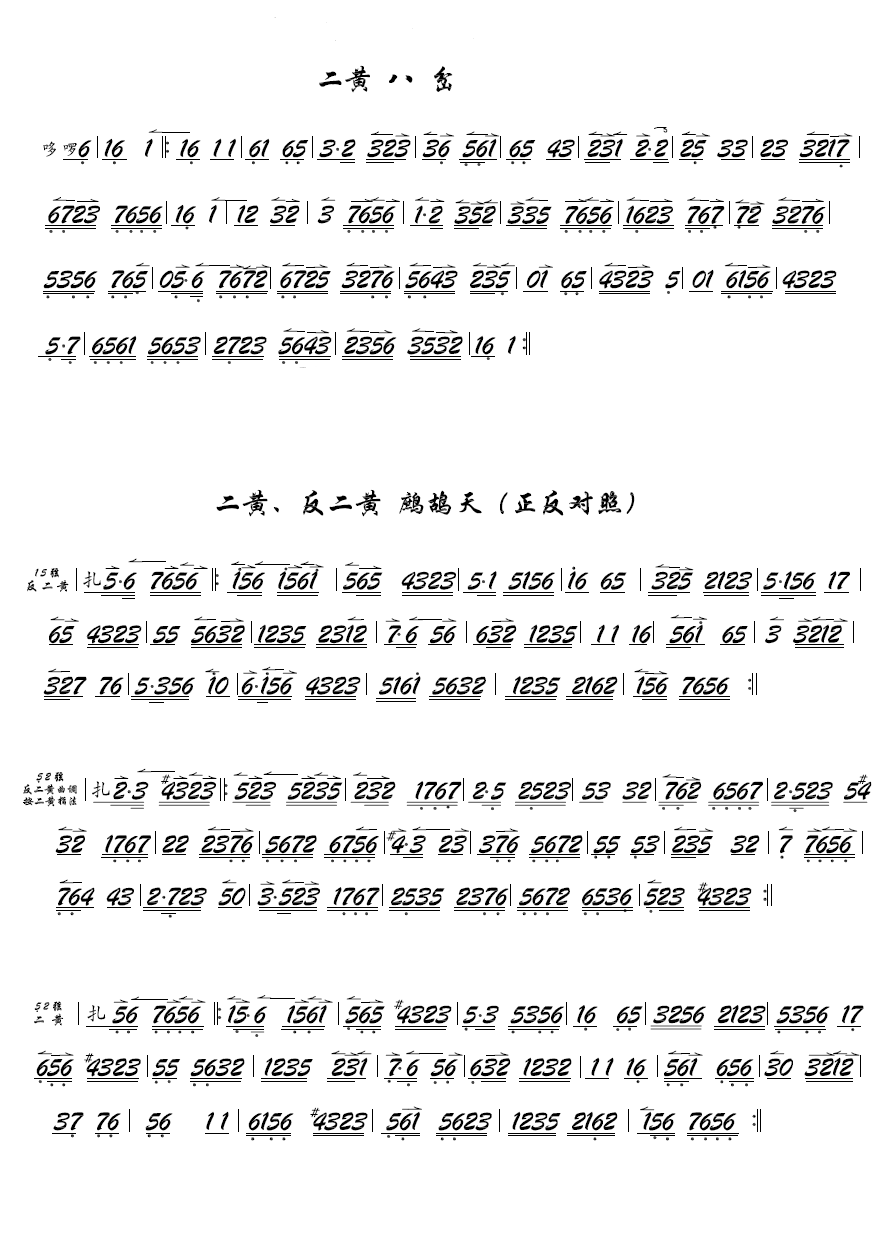 二黄 八 岔
哆 啰6 | 16 1 ‖: 16 11 | 61 65 | 3·2 323 | 36 561 | 65 43 | 231 2·2 | 25 33 | 23 3217 |
6723 7656 | 16 1 | 12 32 | 3 7656 | 1·2 352 | 335 7656 | 1623 767 | 72 3276 |
5356 765 | 05·6 7672 | 6725 3276 | 5643 235 | 01 65 | 4323 5 | 01 6156 | 4323
5·7 | 6561 5653 | 2723 5643 | 2356 3532 | 16 1 :‖
二黄、反二黄 鹧鸪天（正反对照）
15弦
反二黄 | 扎 5·6 7656 ‖: 156 1561 | 565 4323 | 5·1 5156 | 16 65 | 325 2123 | 5·156 17 |
65 4323 | 55 5632 | 1235 2312 | 7·6 56 | 632 1235 | 11 16 | 561 65 | 3 3212 |
327 76 | 5·356 10 | 6·156 4323 | 5161 5632 | 1235 2162 | 156 7656 :‖
52弦
反二黄曲调
按二黄指法 | 扎 2·3 #4323 ‖: 523 5235 | 232 1767 | 2·5 2523 | 53 32 | 762 6567 | 2·523 5#4
32 1767 | 22 2376 | 5672 6756 | #4·3 23 | 376 5672 | 55 53 | 235 32 | 7 7656 |
764 43 | 2·723 50 | 3·523 1767 | 2535 2376 | 5672 6536 | 523 #4323 :‖
52弦
二黄 | 扎 56 7656 ‖: 15·6 1561 | 565 #4323 | 5·3 5356 | 16 65 | 3256 2123 | 5356 17
656 #4323 | 55 5632 | 1235 231 | 7·6 56 | 632 1232 | 11 16 | 561 656 | 30 3212 |
37 76 | 56 11 | 6156 #4323 | 561 5623 | 1235 2162 | 156 7656 :‖